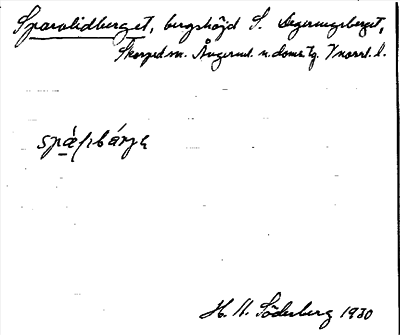 Sparvlidberget, bergshöjd S. Degerungsberget,
Skorped sn. Ångerml. n. doms. tg. Vnorrl. l.
spáḷıbárjɐ
H. H. Söderberg 1930